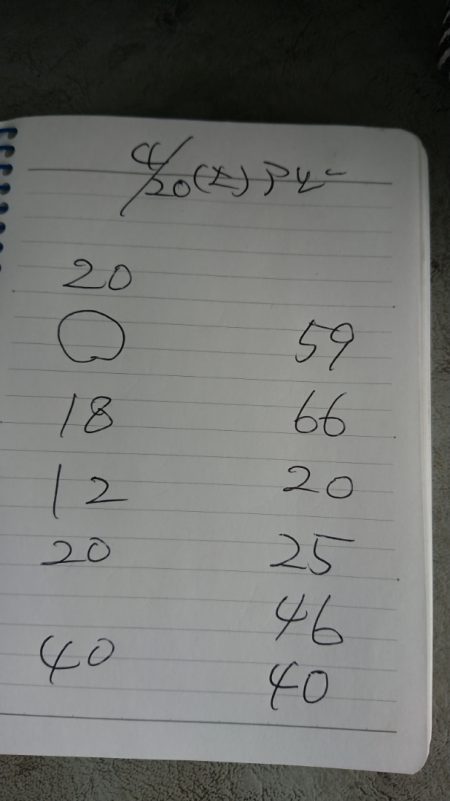 4/20(土)
20
○ 59
18 66
12 20
20 25
46
40 40